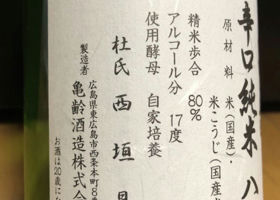 辛口純米 八
原材料 米(国産)・
米こうじ(国産
精米歩合 80%
アルコール分 17度
使用酵母 自家培養
杜氏 西垣
製造者
広島県東広島市西条本町8
亀齢酒造株式会
お酒は20歳に